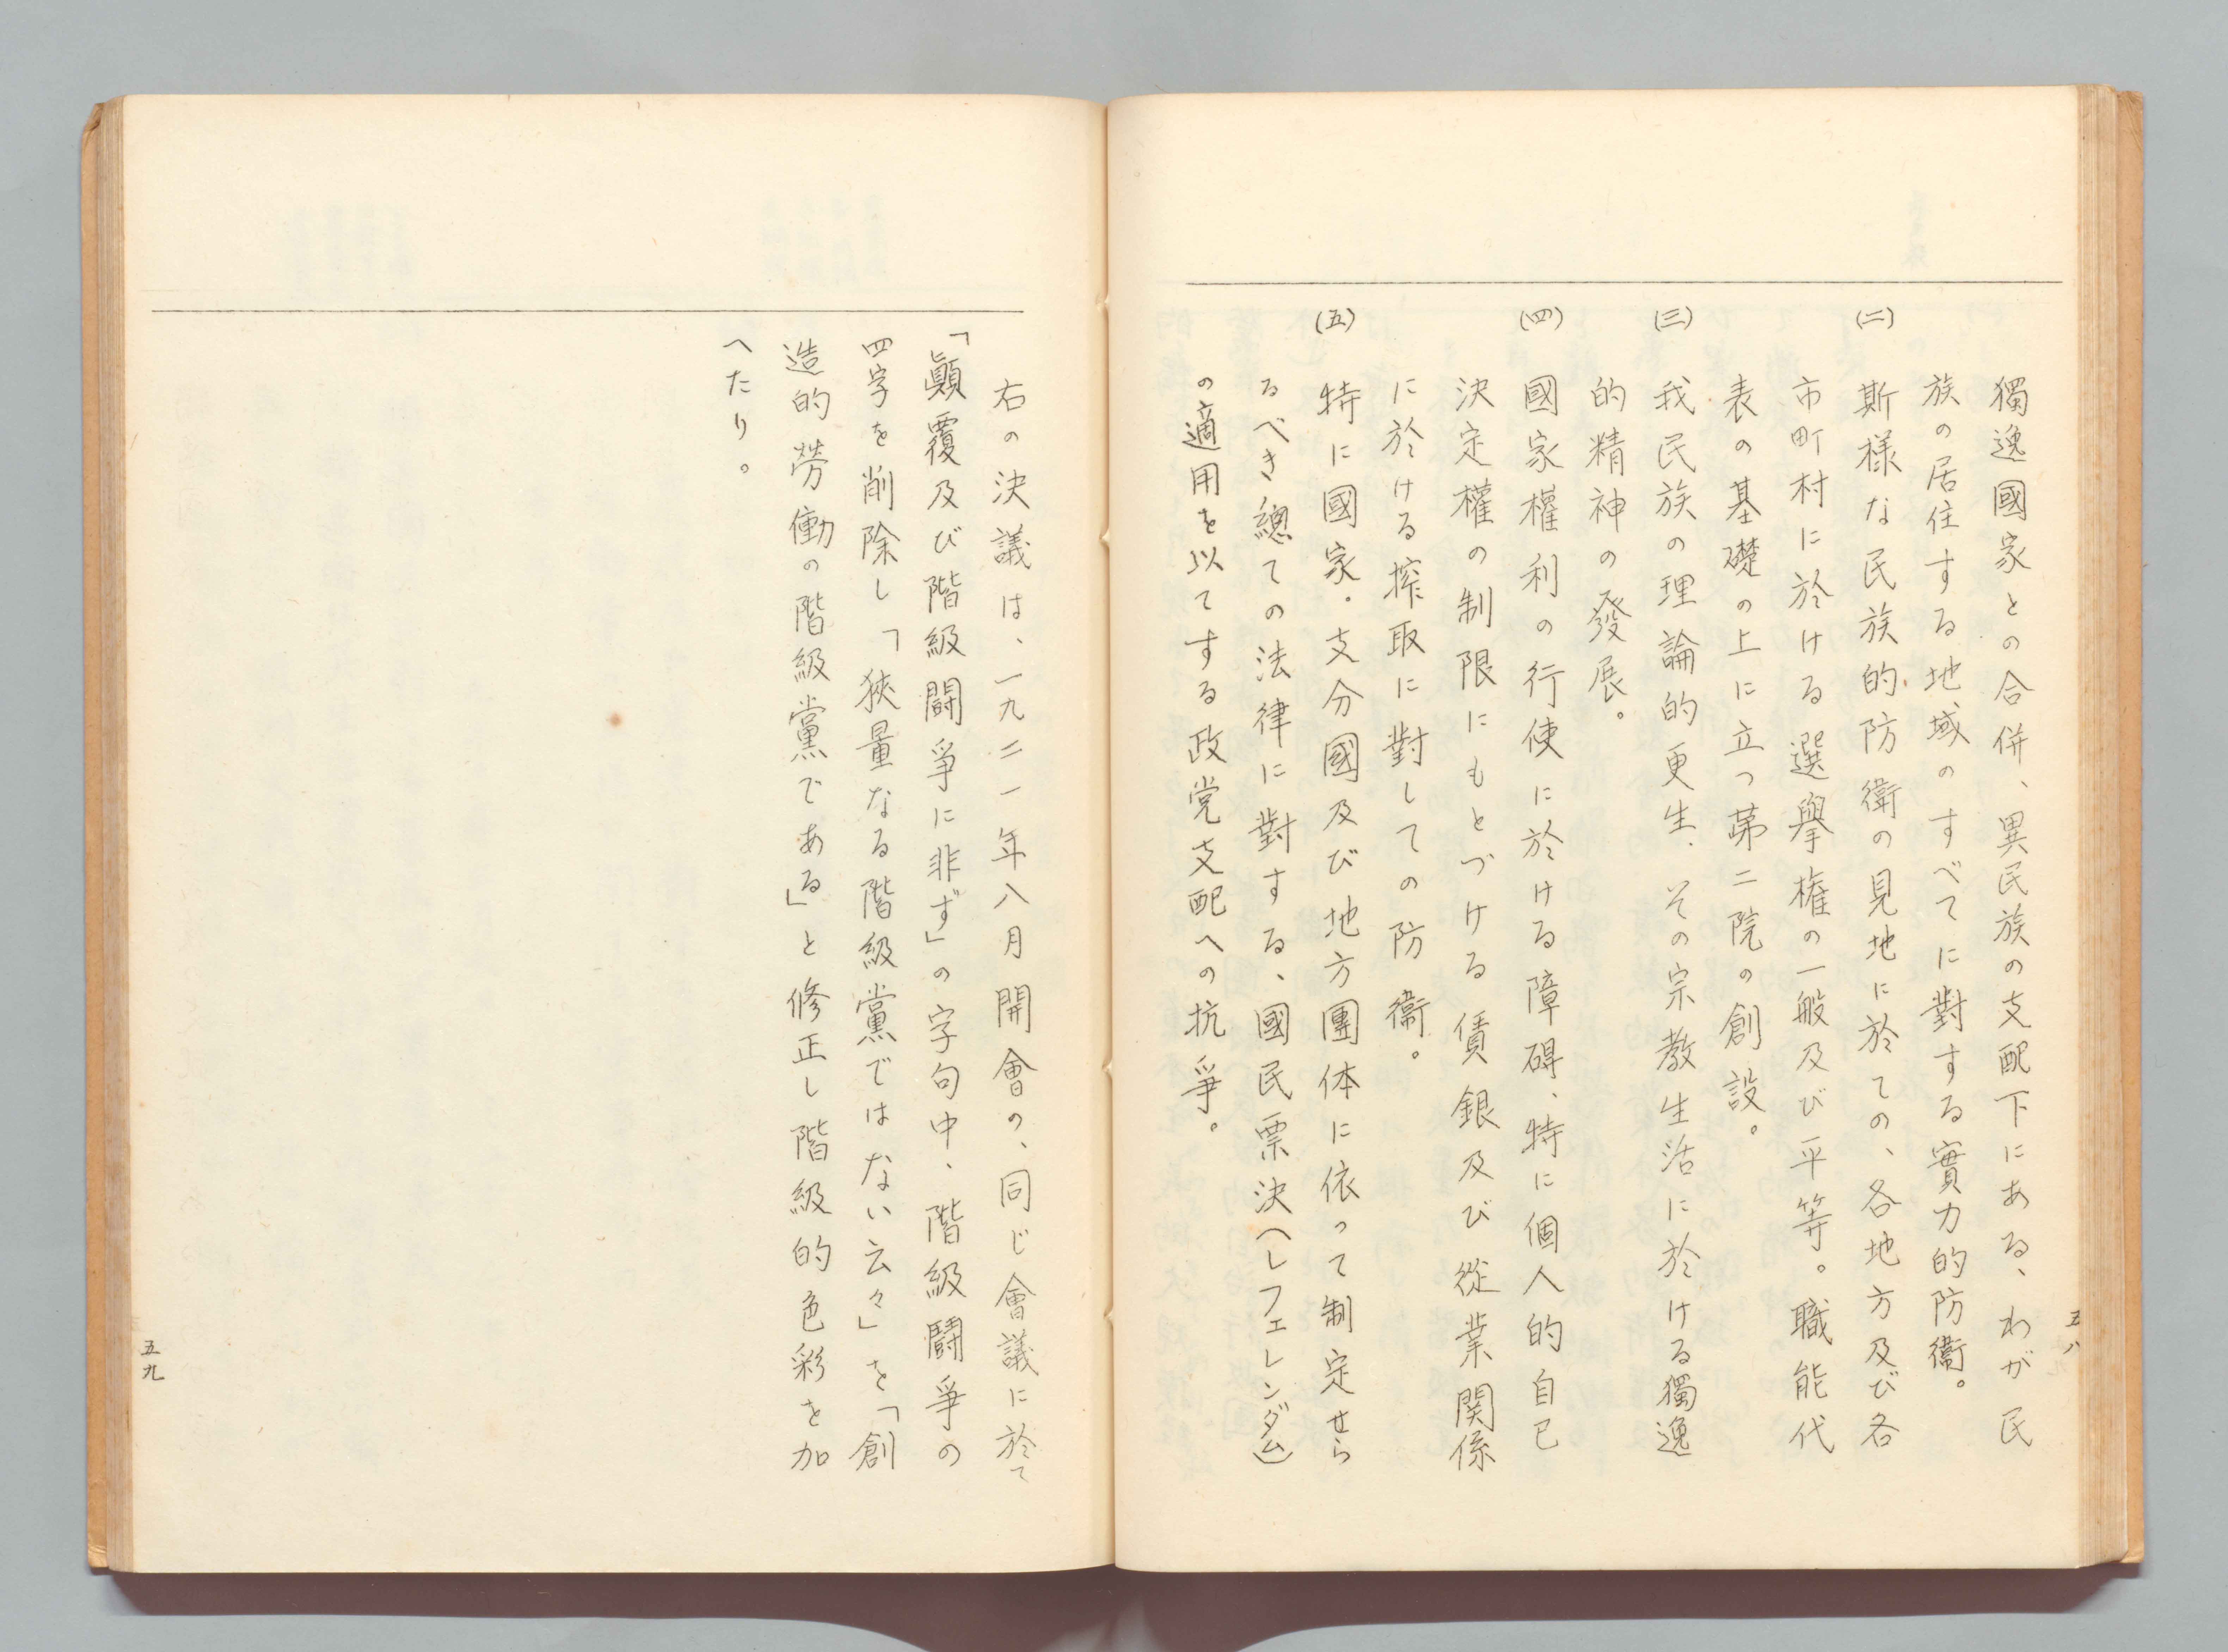 獨逸國家との合併、異民族の支配下にある、わが民
族の居住する地域のすべてに對する實力的防衞。
(二)斯様な民族的防衛の見地に於ての、各地方及び各
市町村に於ける選擧権の一般及び平等。職能代
表の基礎の上に立つ第二院の創設。
(三)我民族の理論的更生、その宗教生活に於ける獨逸
的精神の發展。
(四)國家權利の行使に於ける障碍、特に個人的自己
決定權の制限にもとづける賃銀及び從業関係
に於ける搾取に對しての防衞。
(五)特に國家・支分國及び地方團体に依って制定せら
るべき總ての法律に對する、國民票決(レフェレンダム)
の適用を以てする政党支配への抗爭。
五八
右の決議は、一九二一年八月開會の、同じ會議に於て
「顚覆及び階級闘爭に非ず」の字句中、階級鬪爭の
四字を削除し「狹量なる階級黨ではない云々」を「創
造的勞働の階級黨である」と修正し階級的色彩を加
へたり。
五九